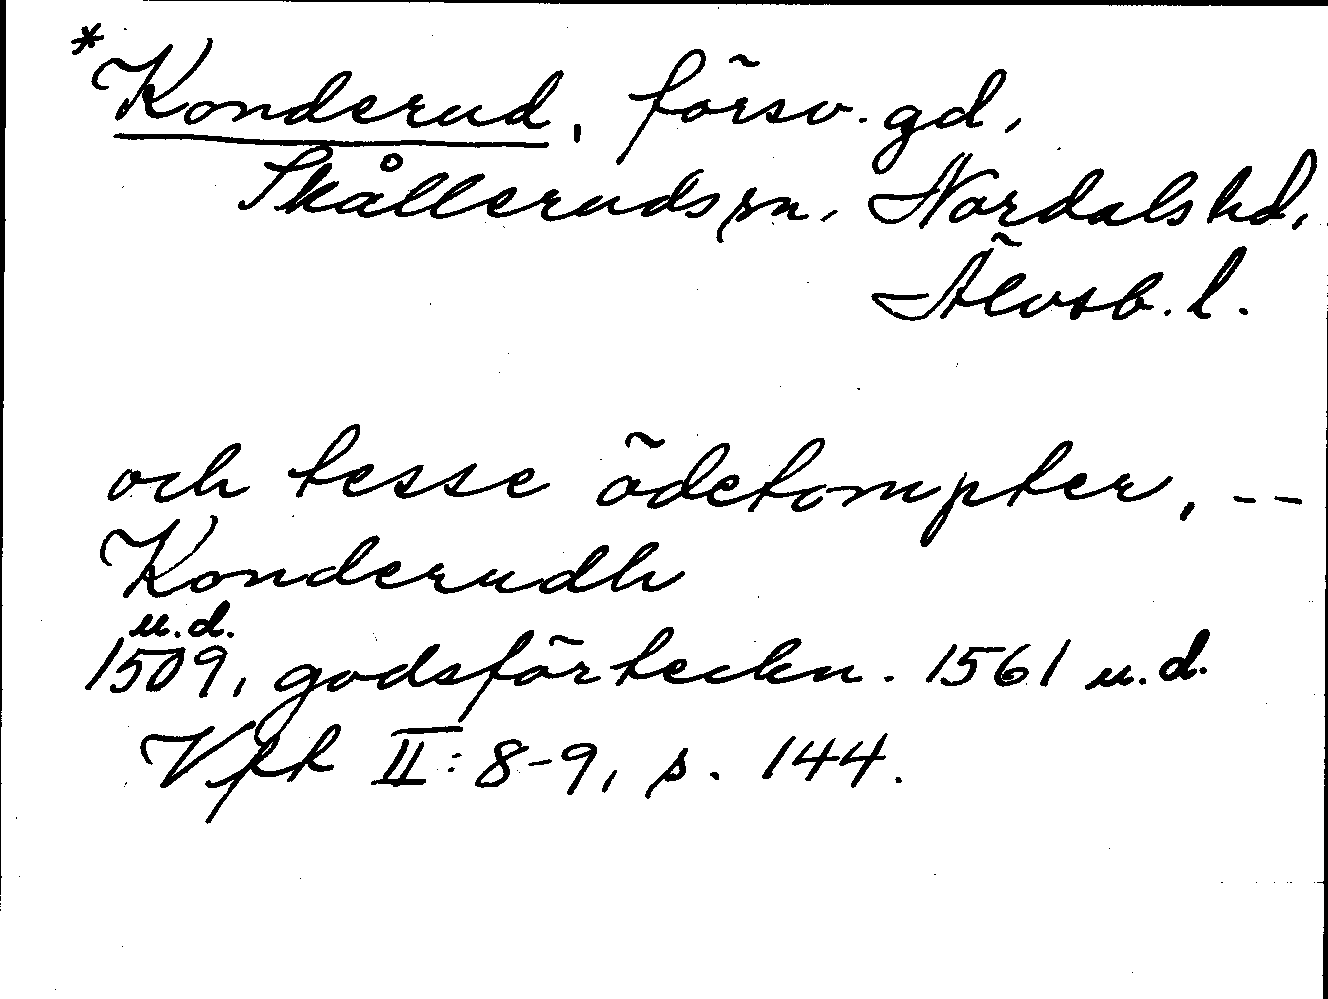 *Konderud, försv. gd,
Skålleruds sn, Nordals hd,
Älvsb. l.
och tesse ödetompter, --
Konderudh
u.d.
1509, godsförteckn. 1561 u.d.
Vfk II: 8-9, s. 144.